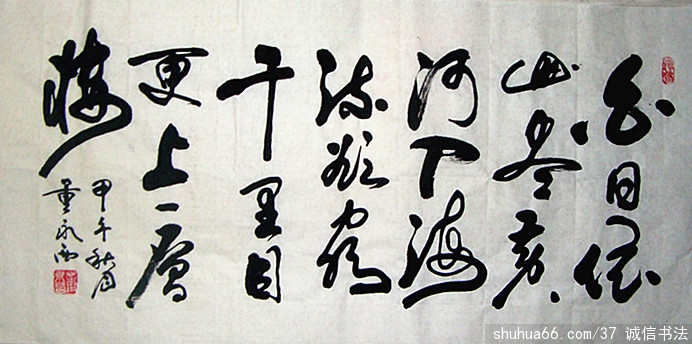 白日依
山尽黄
河入海
流欲穷
千里目
更上一層
楼
甲午秋月
董永
shuhua66.com/37 诚信书法